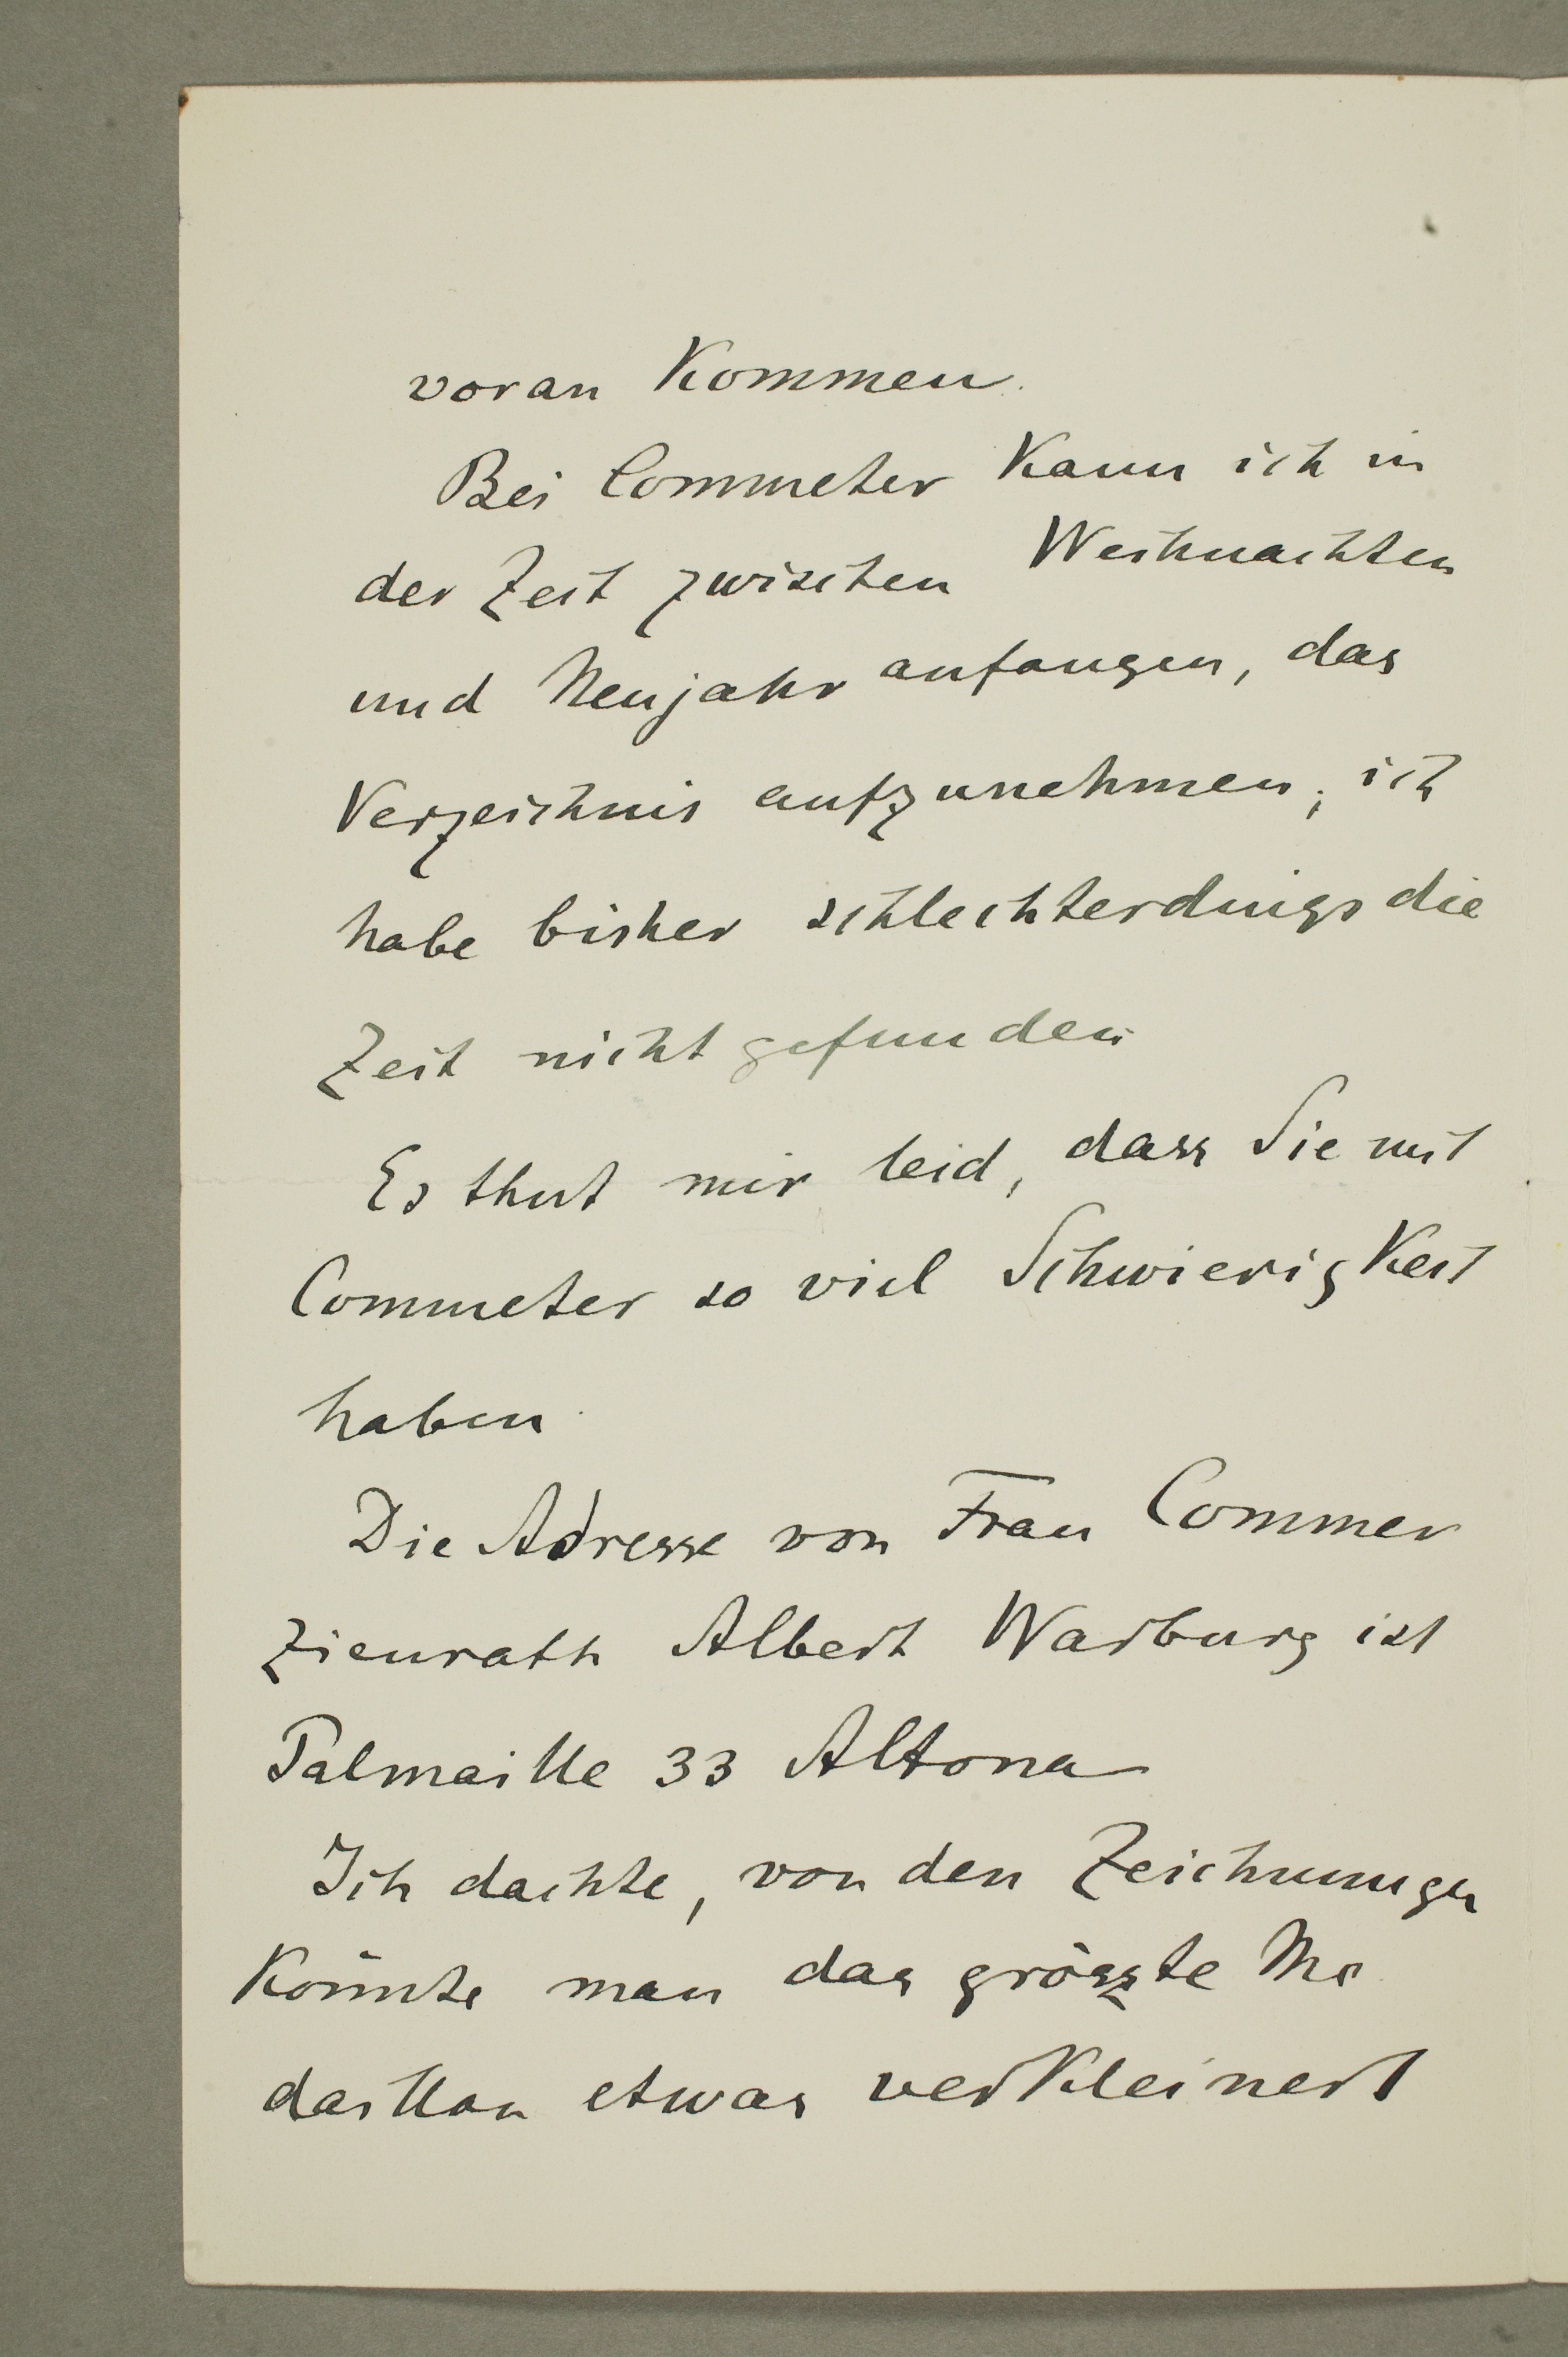 voran kommen.
Bei Commeter kann ich in
der Zeit zwischen Weihnachten
und Neujahr anfangen, das
Verzeichnis aufzunehmen; ich
habe bisher schlechterdings die
Zeit nicht gefunden.
Es thut mir leid, dass Sie mit
Commeter so viel Schwierigkeit
haben.
Die Adresse von Frau Commer
zienrath Albert Warburg ist
Palmaille 33 Altona
Ich dachte, von den Zeichnungen
könnte man das grösste Me
daillon etwas verkleinert